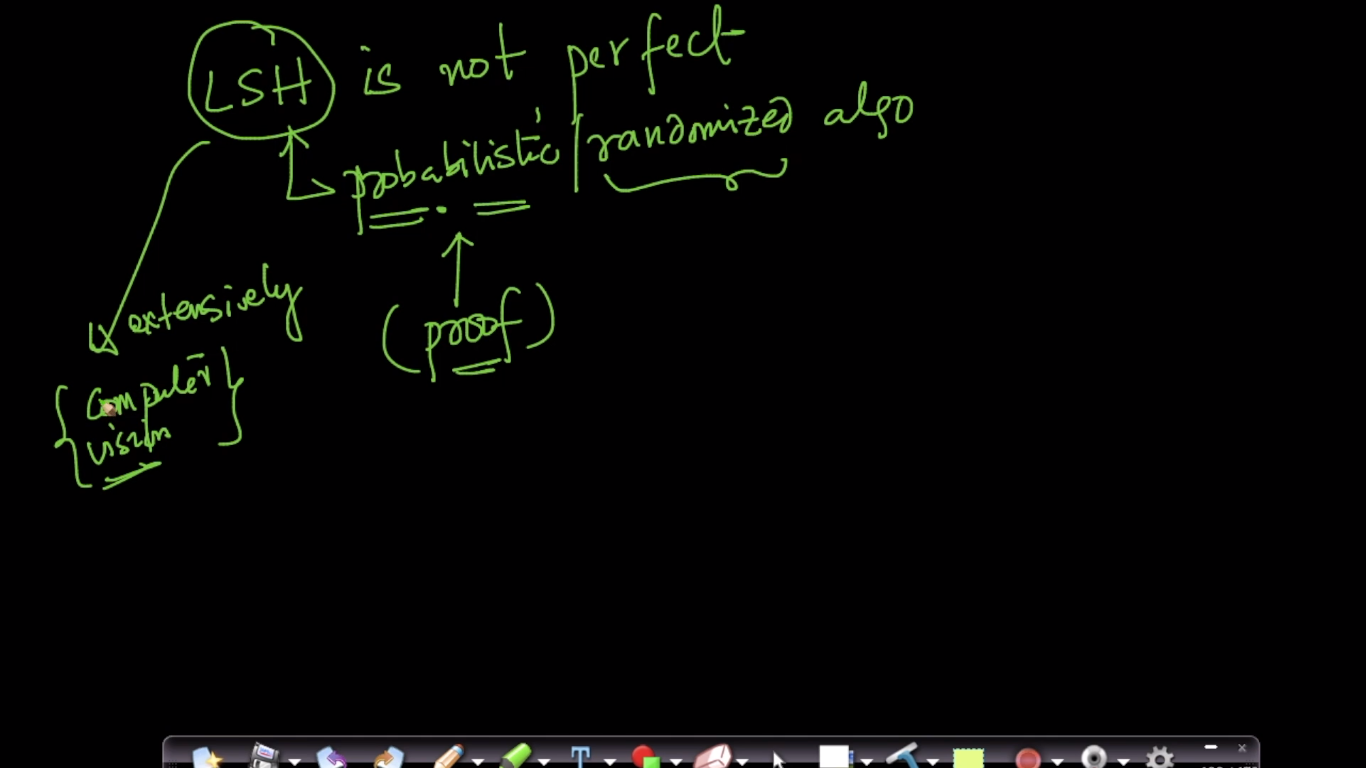 LSH is not perfect
probabilistic / randomized algo
extensively
(proof)
{ Computer
vision }